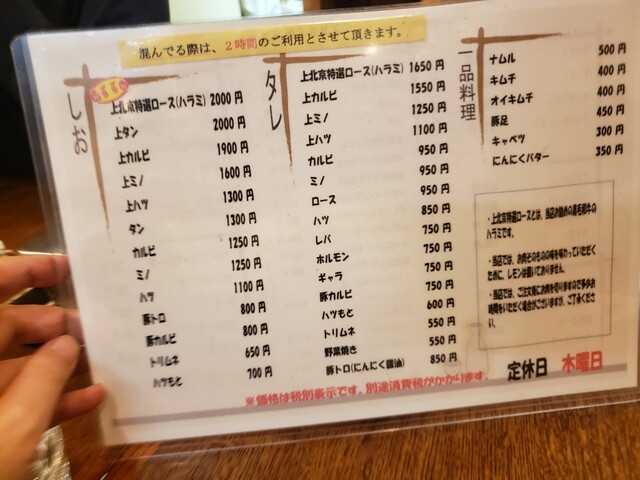 混んでる際は、2時間のご利用とさせて頂きます。
しお
上北京特選ロース(ハラミ) 2000円
上タン 2000円
上カルビ 1900円
上ミノ 1600円
上ハツ 1300円
タン 1300円
カルビ 1250円
ミノ 1250円
ハツ 1100円
豚トロ 800円
豚カルビ 800円
トリムネ 650円
ハツもと 700円
タレ
上北京特選ロース(ハラミ) 1650円
上カルビ 1550円
上ミノ 1250円
上ハツ 1100円
カルビ 950円
ミノ 950円
ロース 950円
ハツ 850円
レバ 750円
ホルモン 750円
ギャラ 750円
豚カルビ 750円
ハツもと 600円
トリムネ 550円
野菜焼き 550円
豚トロ(にんにく醤油) 850円
一品料理
ナムル 500円
キムチ 400円
オイキムチ 400円
豚足 450円
キャベツ 300円
にんにくバター 350円
・上北京特選ロースとは、当店お勧めの黒毛和牛の
ハラミです。
・当店では、お肉そのものの味を味わっていただく
ために、レモンは置いておりません。
・当店では、ご注文後にお肉を切りますので多少お
時間をいただく場合がございますが、ご了承くださ
い。
定休日 木曜日
※価格は税別表示です。別途消費税がかかります。